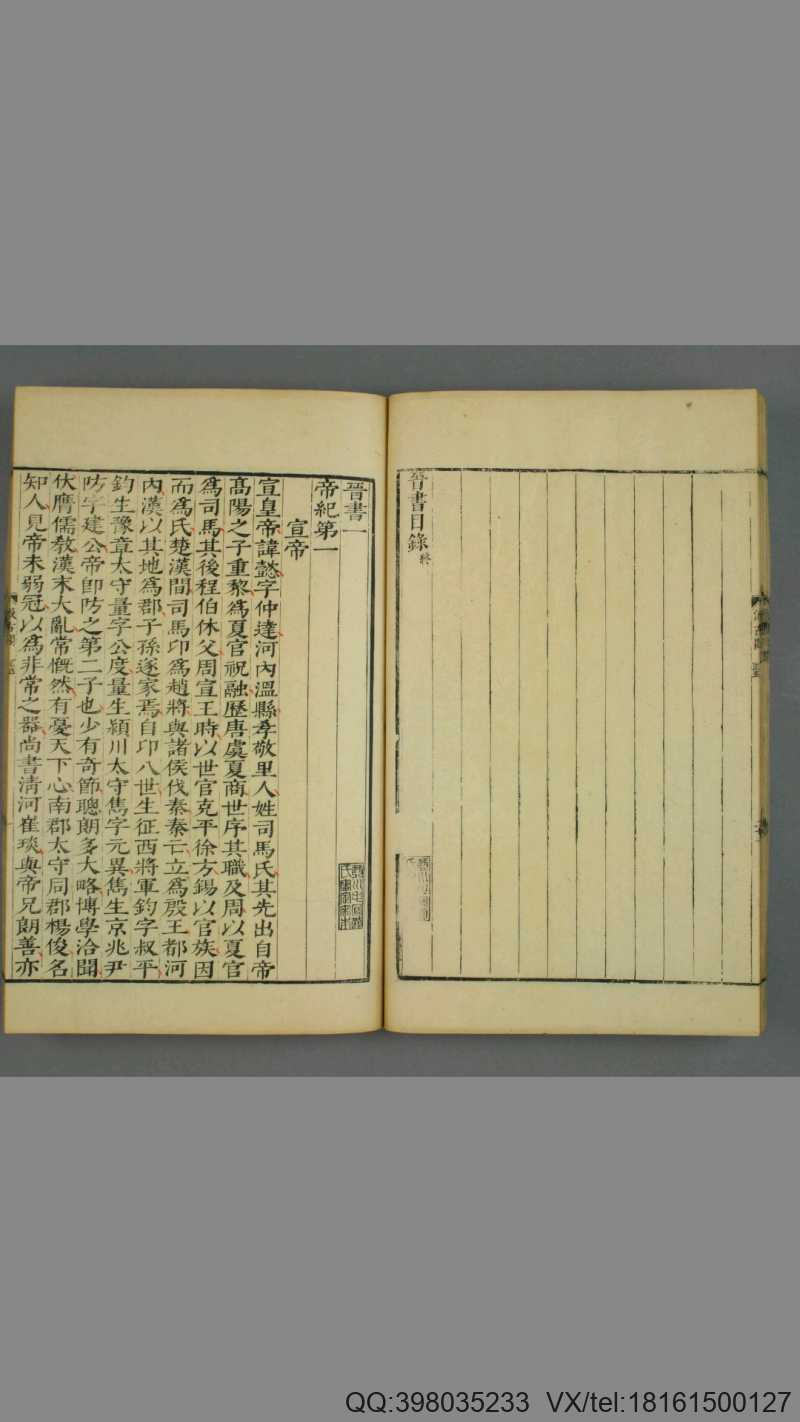 晉書目錄終
晉書一
帝紀第一
宣帝
宣皇帝諱懿字仲達河內溫縣孝敬里人姓司馬氏其先出自帝
高陽之子重黎爲夏官祝融歷唐虞夏商世序其職及周以夏官
爲司馬其後程伯休父周宣王時以世官克平徐方錫以官族因
而爲氏楚漢間司馬卬爲趙將與諸侯伐秦秦亡立爲殷王都河
內漢以其地爲郡子孫遂家焉自卬八世生征西將軍鈞字叔平
鈞生豫章太守量字公度量生潁川太守雋字元異雋生京兆尹
防字建公帝卽防之第二子也少有奇節聰朗多大略博學洽聞
伏膺儒敎漢末大亂常慨然有憂天下心南郡太守同郡楊俊名
知人見帝未弱冠以爲非常之器尚書淸河崔琰與帝兄朗善亦
QQ:398035233 VX/tel:18161500127